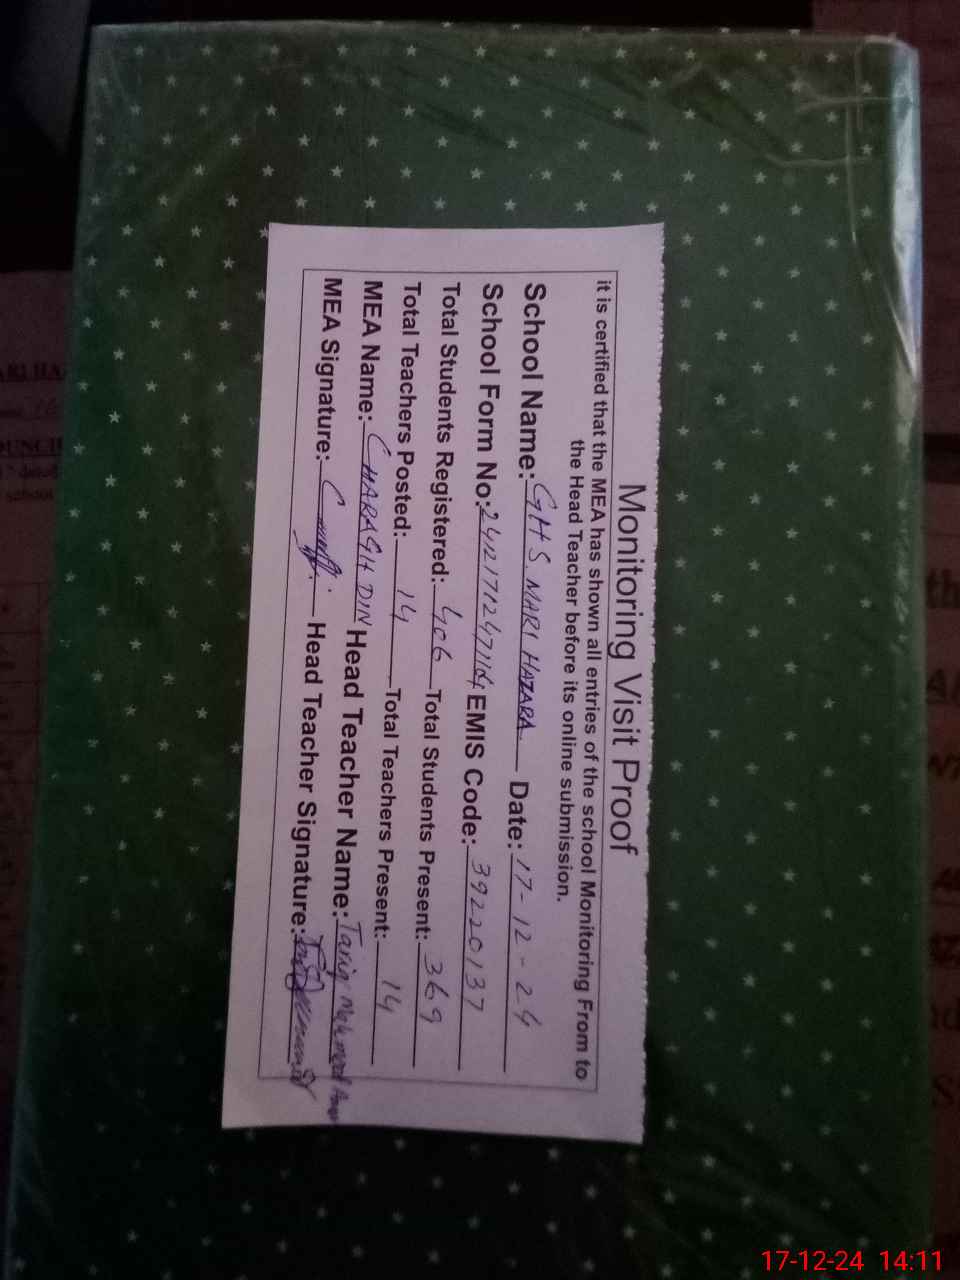 Monitoring Visit Proof
it is certified that the MEA has shown all entries of the school Monitoring From to
the Head Teacher before its online submission.
School Name: GHS. MARI HAZARA Date: 17-12-24
School Form No: EMIS Code: 39220137
Total Students Registered: 406 Total Students Present: 369
Total Teachers Posted: 14 Total Teachers Present: 14
MEA Name: CHARAGH DIN Head Teacher Name: Tariq
MEA Signature: Head Teacher Signature:
17-12-24 14:11